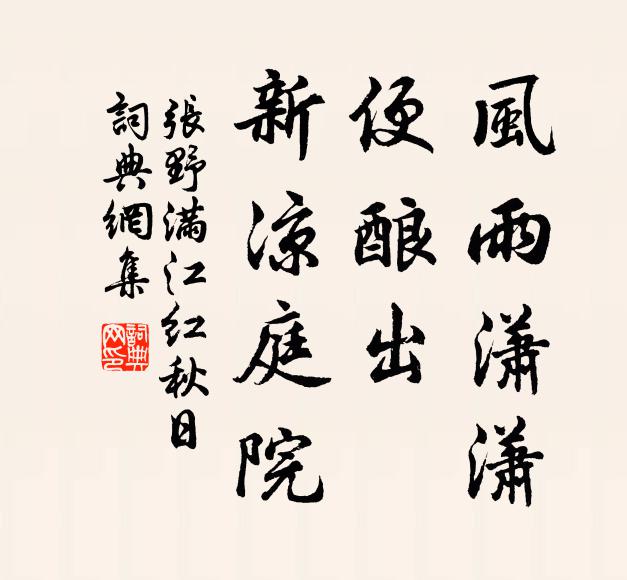 風雨瀟瀟
便酿出
新凉庭院
張野满江红秋日
詞典網集
詞典
网印